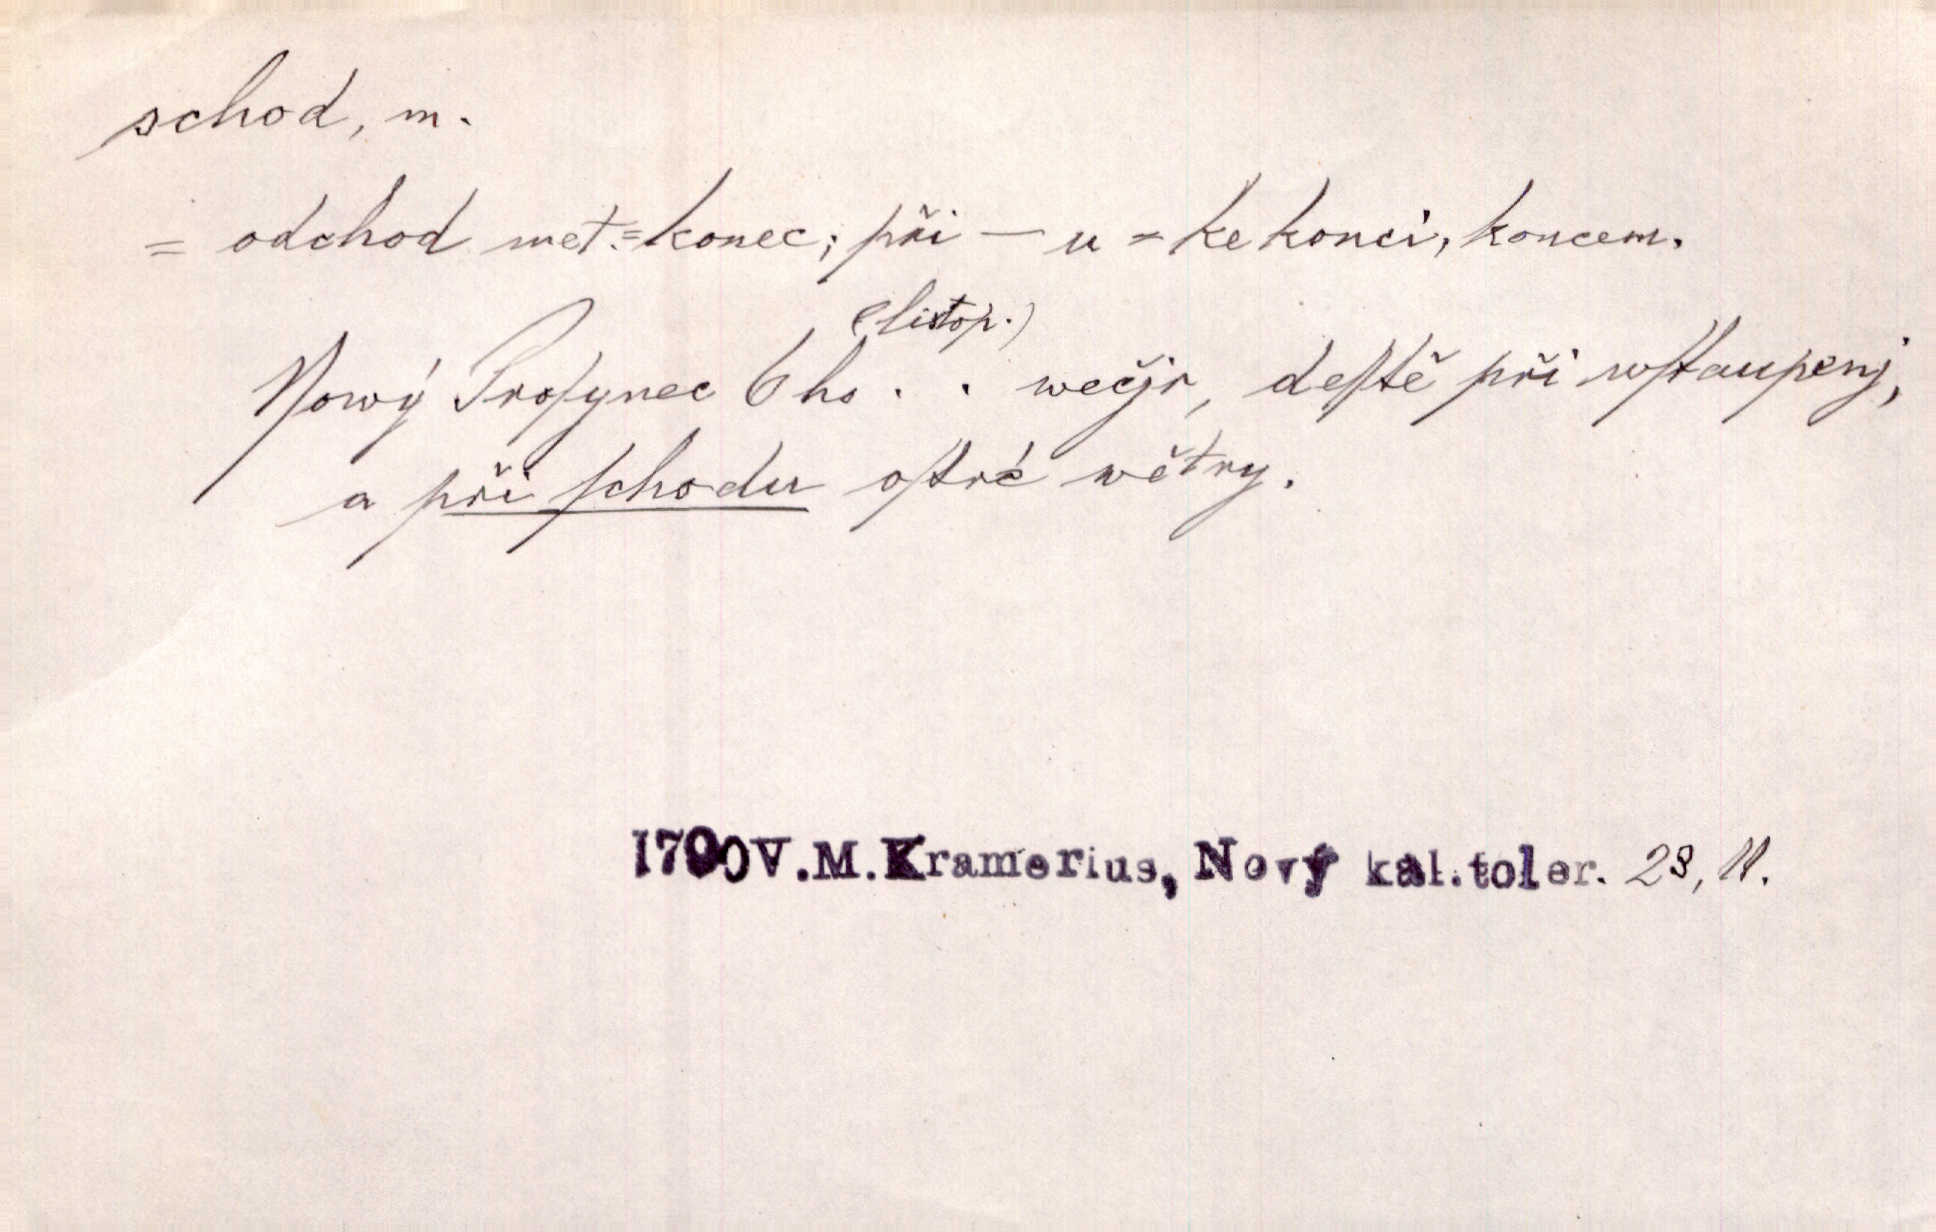 schod, m.
= odchod met. = konec; při – u = ke konci, koncem.
(listop.)
Nowý Proſynec 6 ho . . wečjr, deſtě při wſtaupenj,
a při ſchodu oſtré wětry.
1790 V.M.Kramerius, Nový kal.toler. 23, 11.